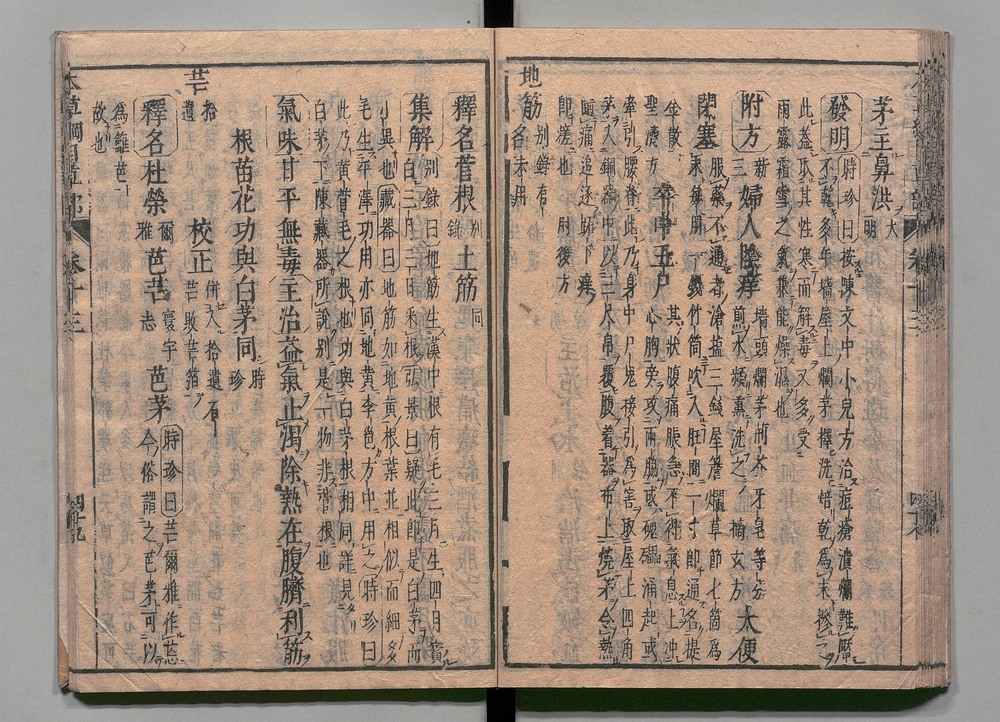 茅主鼻洪大明
發明時珍曰按陳文中小兒方治痘瘡潰爛難靨
不乾多年墻屋上爛茅擇洗焙乾爲末摻之
此蓋取其性寒而解毒又多受
雨露霜雪之氣兼能燥濕也
附方新三婦人陰痒墻頭爛茅荊芥牙皂等分
煎水頻熏洗之摘玄方大便
閉塞服藥不通者滄鹽三錢屋簷爛草節七箇爲
末每用一錢竹筒吹入肛内一寸卽通名提
金散
聖濟方卒中五尸其狀腹痛脹急不得氣息上冲
心胸旁攻兩脇或磈礧涌起或
牽引腰脊此乃身中尸鬼接引爲害取屋上四角
茅入銅器中以三尺帛覆腹着器布上燒茅令熱
隨痛追逐跖下痒
卽瘥也肘後方
地筋别錄有名未用
釋名菅根别錄土筋同
集解别錄曰地筋生漢中根有毛三月生四月實
白三月三日采根弘景曰疑此卽是白茅而
小異也藏器曰地筋如地黃根葉並相似而細多
毛生平澤功用亦同地黃李邕方中用之時珍曰
此乃黃菅茅之根也功與白茅根相同詳見
白茅下陳藏器所說别是一物非菅根也
氣味甘平無毒主治益氣止渴除熱在腹臍利筋
根苗花功與白茅同時珍
芒拾遺校正併入拾遺
石芒敗芒箔
釋名杜榮爾雅芭芒寰宇志芭茅時珍曰芒爾雅作莣
今俗謂之芭茅可以
爲籬笆
故也
本草綱目草部
卷十三
四十九